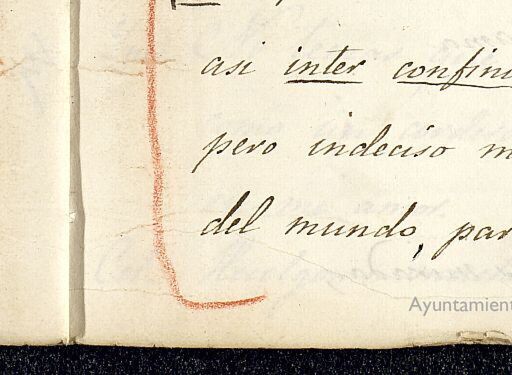 asi inter
pero indeciso
del mundo, par
Ayuntamient